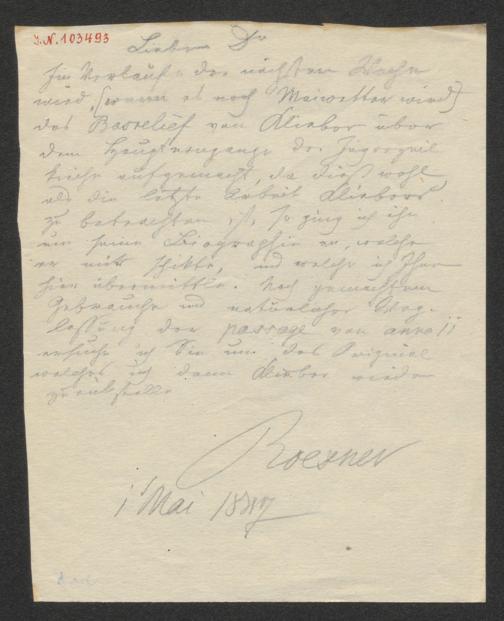 I.N. 103493
Lieber Dr
Im Verlauf der nächsten Woche
wird, (wenn es noch Maiwetter wird)
das Basrelief von Klieber über
dem Haupteingange der
kirche aufgemacht, da dieß wohl
als die letzte Arbeit Kliebers
zu betrachten ist, so ging ich ihn
um seine Biographie an, welche
er mir schikte, und welche ich Ihnen
hier übermittle. Nach gemachtem
Gebrauche und natürlicher Weg-
lassung der passage von anno
ersuche ich Sie um das Original
welches ich dann Klieber wieder
zurückstelle
Roesner
1 Mai